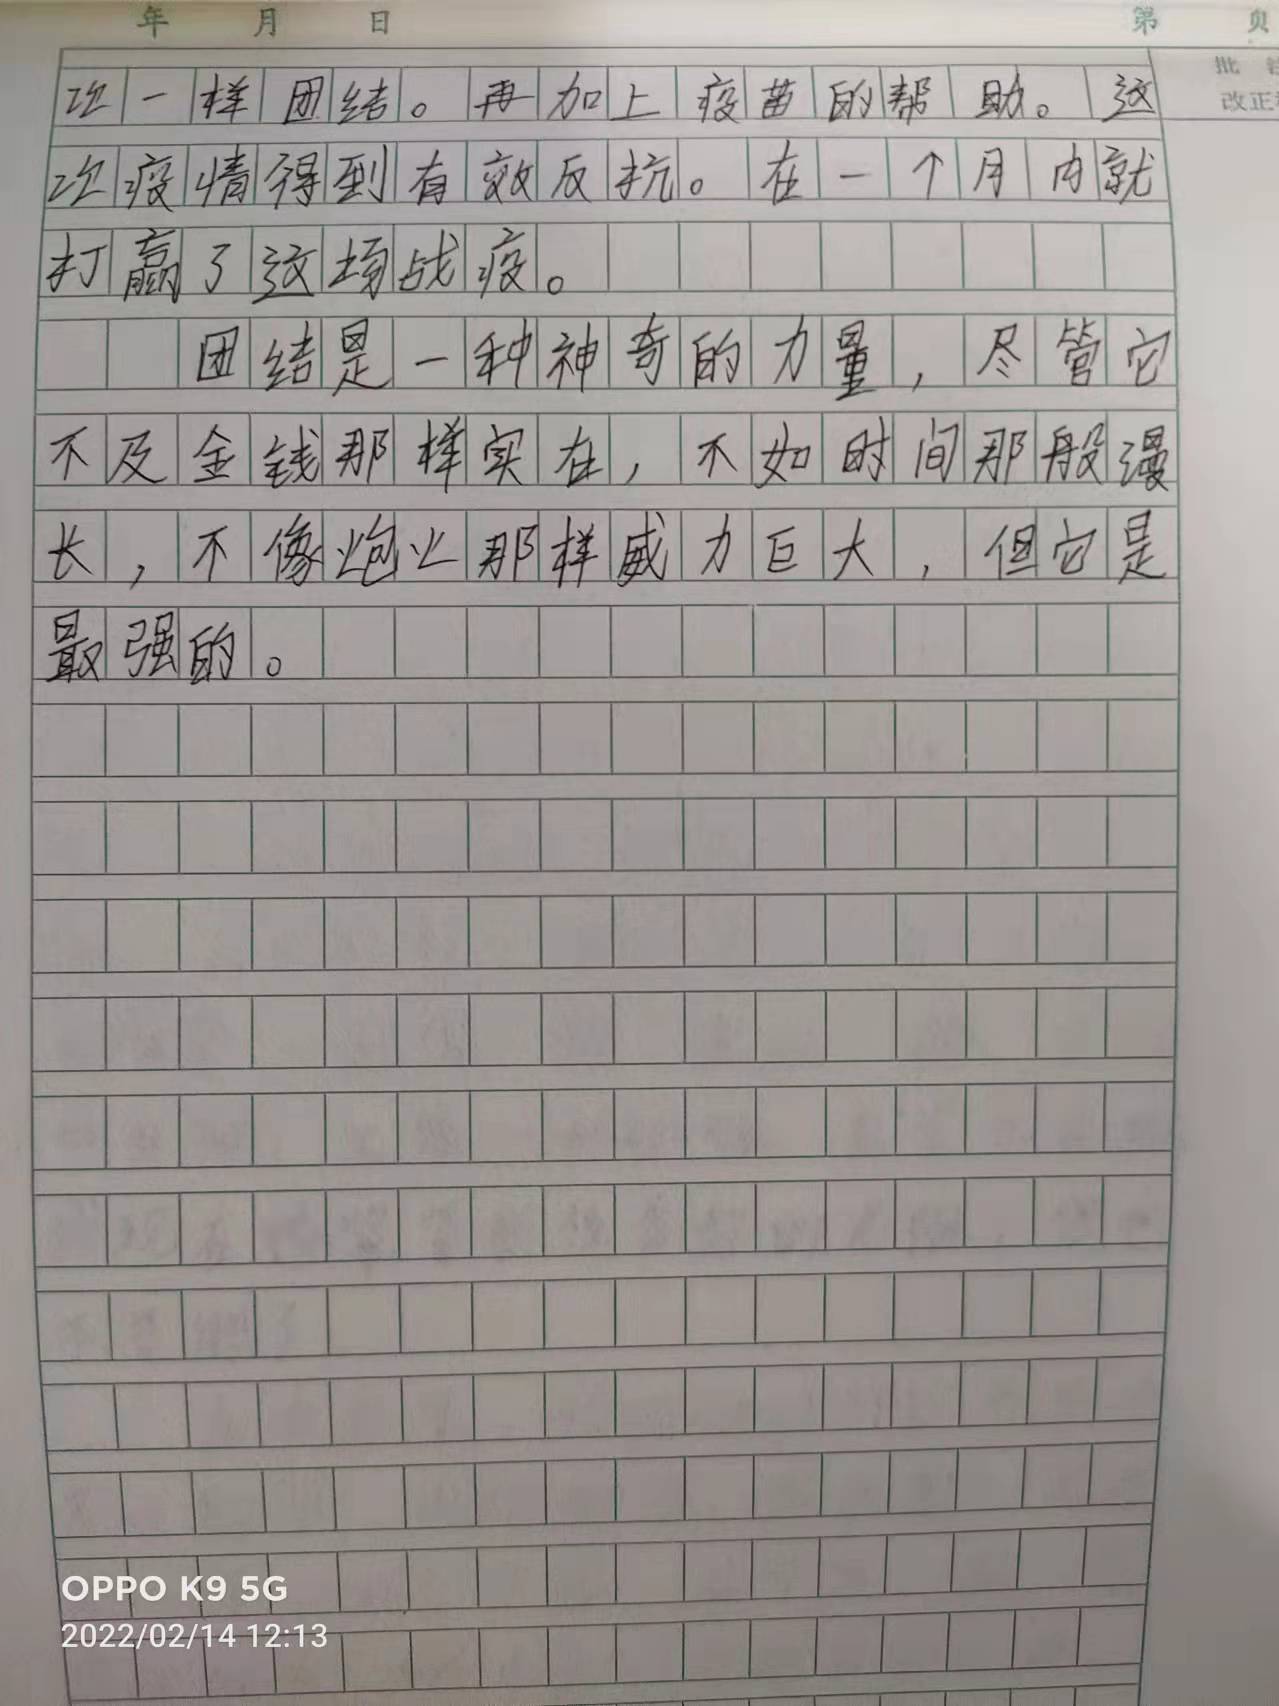 年 月 日 第 页
批
改正
次一样团结。再加上疫苗的帮助。这
次疫情得到有效反抗。在一个月内就
打赢了这场战疫。
团结是一种神奇的力量，尽管它
不及金钱那样实在，不如时间那般漫
长，不像炮火那样威力巨大，但它是
最强的。
OPPO K9 5G
2022/02/14 12:13